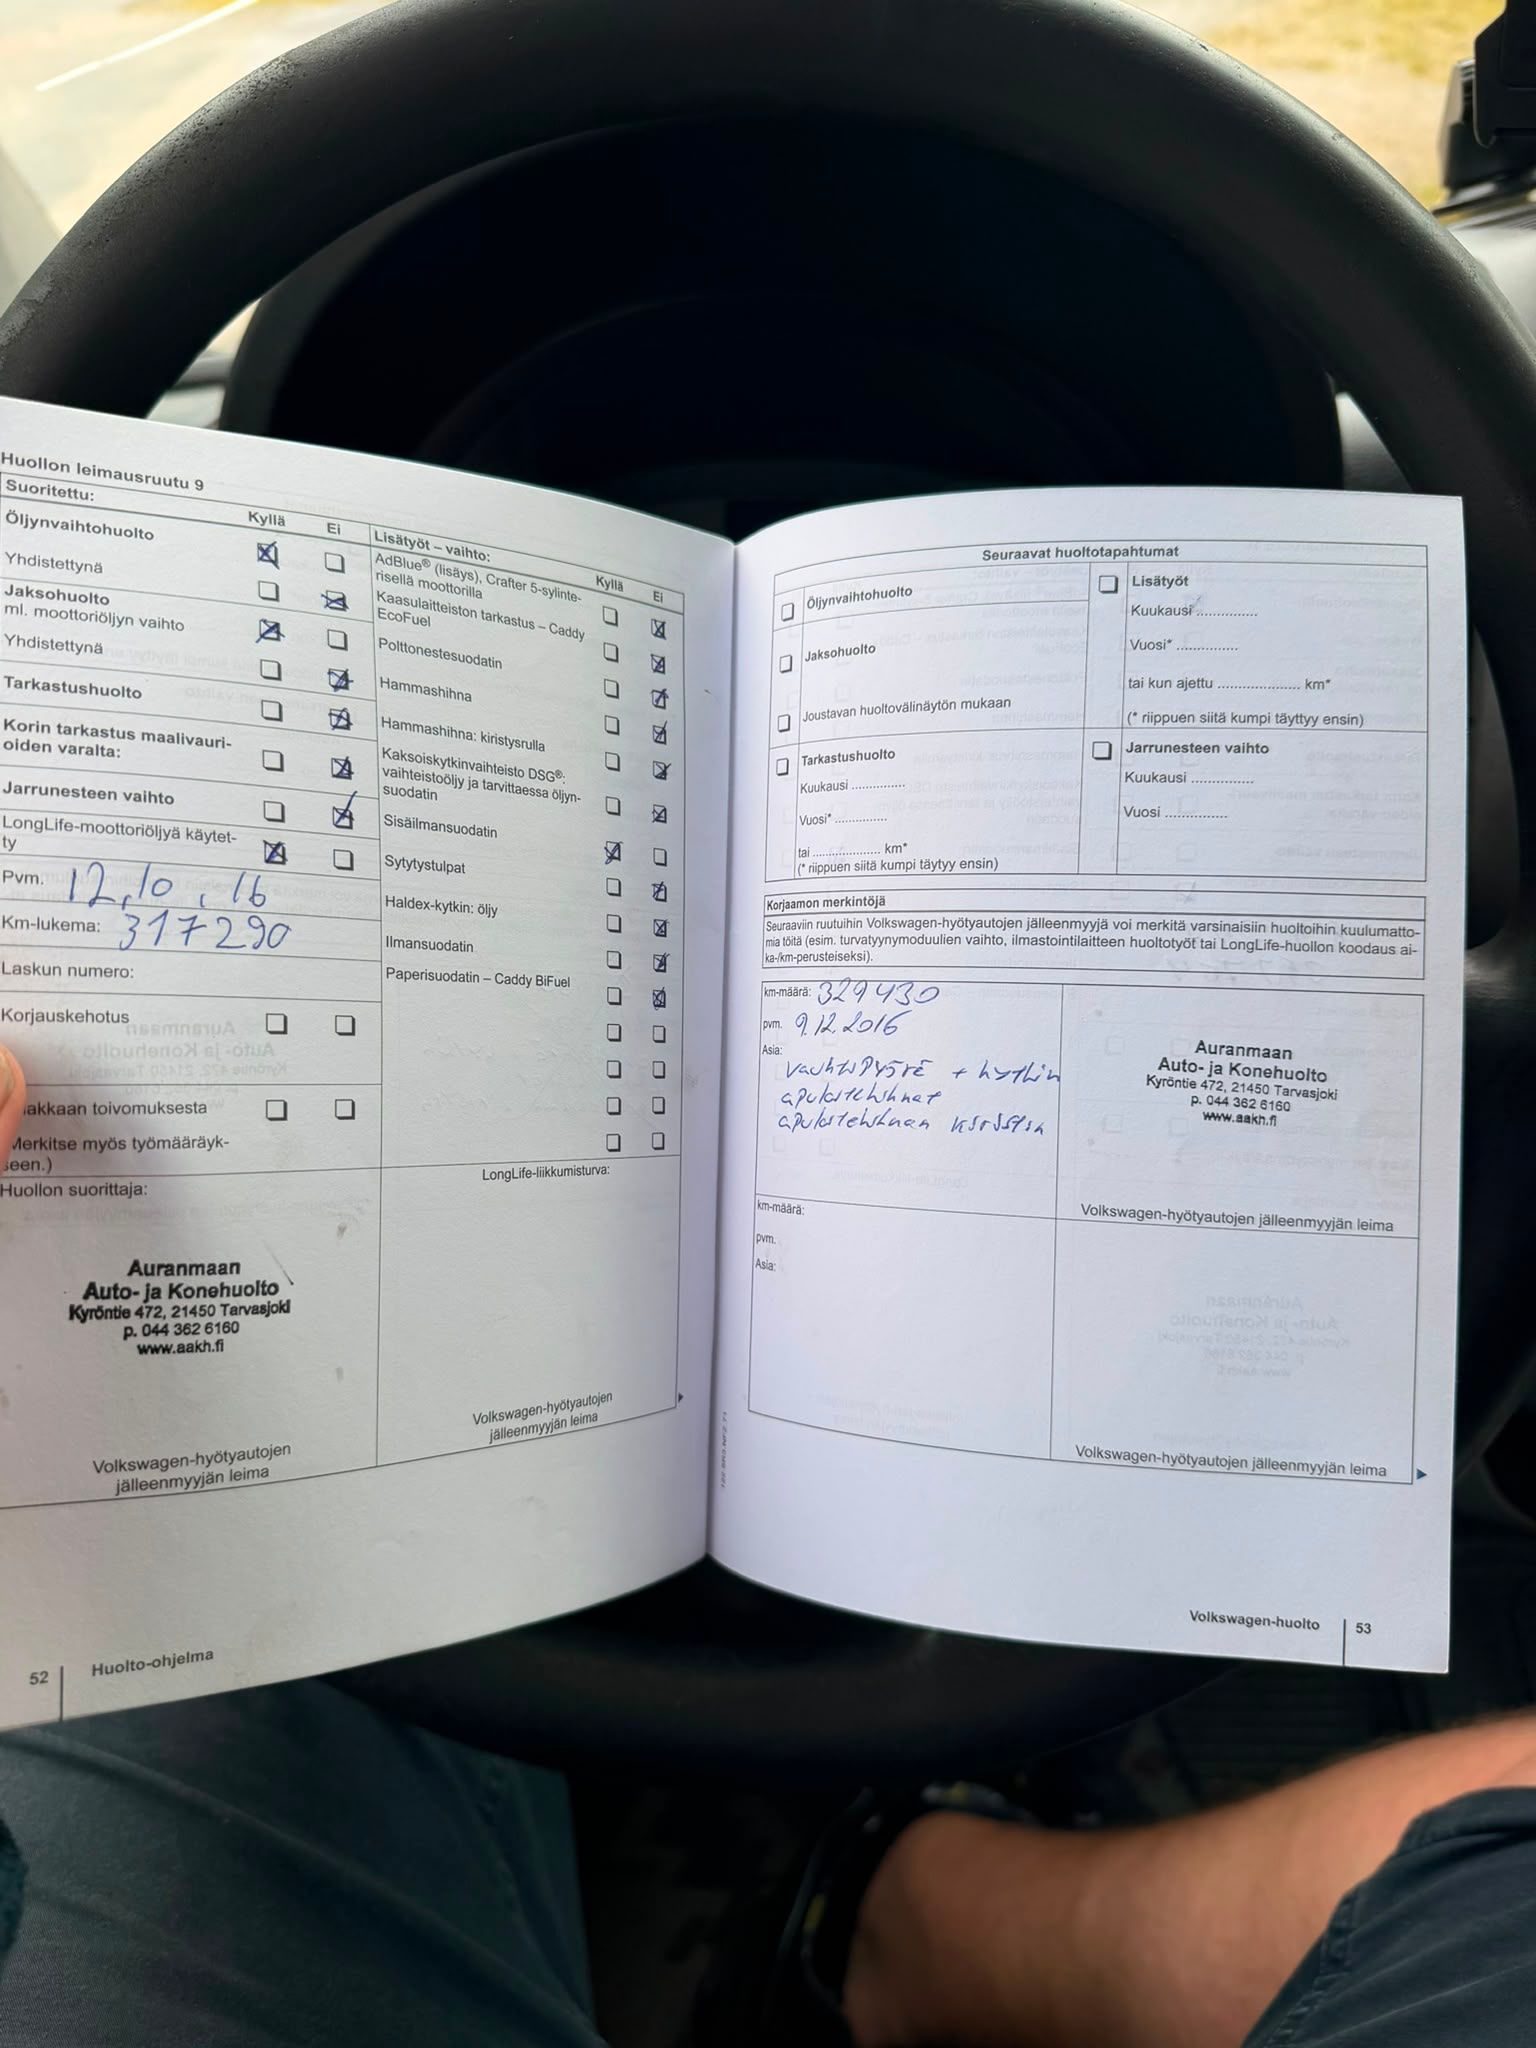 Huollon leimausruutu 9
Suoritettu:
Kyllä
Ei
Öljynvaihtohuolto
Yhdistettynä
Jaksohuolto
ml. moottoriöljyn vaihto
Yhdistettynä
Tarkastushuolto
Korin tarkastus maalivauri-
oiden varalta:
Jarrunesteen vaihto
LongLife-moottoriöljyä käytet-
ty
Pvm. 12.10.16
Km-lukema: 317290
Laskun numero:
Korjauskehotus
akkaan toivomuksesta
Merkitse myös työmääräyk-
seen.)
Huollon suorittaja:
Auranmaan
Auto- ja Konehuolto
Kyröntie 472, 21450 Tarvasjoki
p. 044 362 6160
www.aakh.fi
Volkswagen-hyötyautojen
jälleenmyyjän leima
Lisätyöt – vaihto:
Kyllä
Ei
AdBlue® (lisäys), Crafter 5-sylinte-
risellä moottorilla
Kaasulaitteiston tarkastus – Caddy
EcoFuel
Polttonestesuodatin
Hammashihna
Hammashihna: kiristysrulla
Kaksoiskytkinvaihteisto DSG®:
vaihteistoöljy ja tarvittaessa öljyn-
suodatin
Sisäilmansuodatin
Sytytystulpat
Haldex-kytkin: öljy
Ilmansuodatin
Paperisuodatin – Caddy BiFuel
LongLife-liikkumisturva:
Volkswagen-hyötyautojen
jälleenmyyjän leima
52
Huolto-ohjelma
Seuraavat huoltotapahtumat
Öljynvaihtohuolto
Jaksohuolto
Joustavan huoltovälinäytön mukaan
Tarkastushuolto
Kuukausi ..............
Vuosi* ..............
tai .................. km*
(* riippuen siitä kumpi täytyy ensin)
Lisätyöt
Kuukausi ..............
Vuosi* ..............
tai kun ajettu ...................... km*
(* riippuen siitä kumpi täyttyy ensin)
Jarrunesteen vaihto
Kuukausi ..............
Vuosi ..............
Korjaamon merkintöjä
Seuraaviin ruutuihin Volkswagen-hyötyautojen jälleenmyyjä voi merkitä varsinaisiin huoltoihin kuulumatto-
mia töitä (esim. turvatyynymoduulien vaihto, ilmastointilaitteen huoltotyöt tai LongLife-huollon koodaus ai-
ka-/km-perusteiseksi).
km-määrä: 329430
pvm. 9.12.2016
Asia:
vauhtipyörä + kytkin
apulaitehihnat
apulaitehihnan kiristin
Auranmaan
Auto- ja Konehuolto
Kyröntie 472, 21450 Tarvasjoki
p. 044 362 6160
www.aakh.fi
Volkswagen-hyötyautojen jälleenmyyjän leima
km-määrä:
pvm.
Asia:
Volkswagen-hyötyautojen jälleenmyyjän leima
Volkswagen-huolto
53